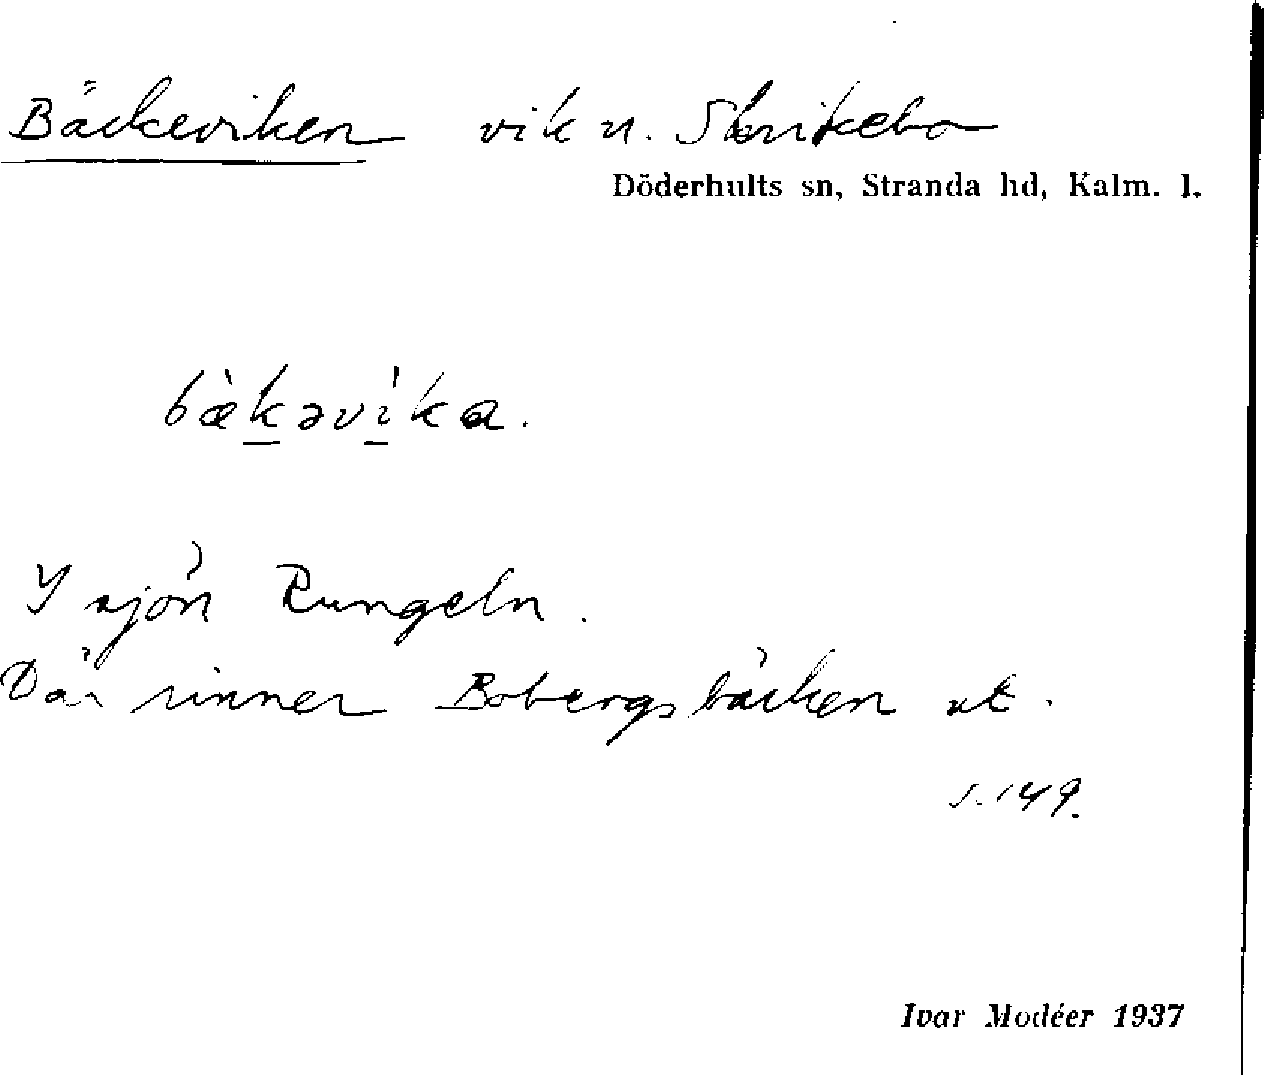 Bäckeviken vik u. Skrikebo
Döderhults sn, Stranda hd, Kalm. l.
bæ̀k̲əvì̲ka.
I sjön Rungeln.
Där rinner Bobergsbäcken ut.
s. 149.
Ivar Modéer 1937